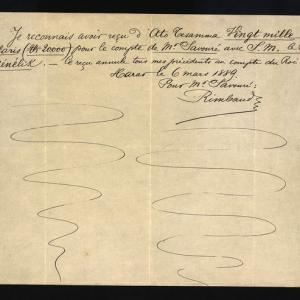 Je reconnais avoir reçu d'Ato Tesamma Vingt mille
(₶ 20000) pour le compte de Mr Savouré avec S. M. le
Ménélik. — le reçu annule tous mes précédents au compte du Roi
Harar le 6 mars 1889
Pour Mr Savouré:
Rimbaud